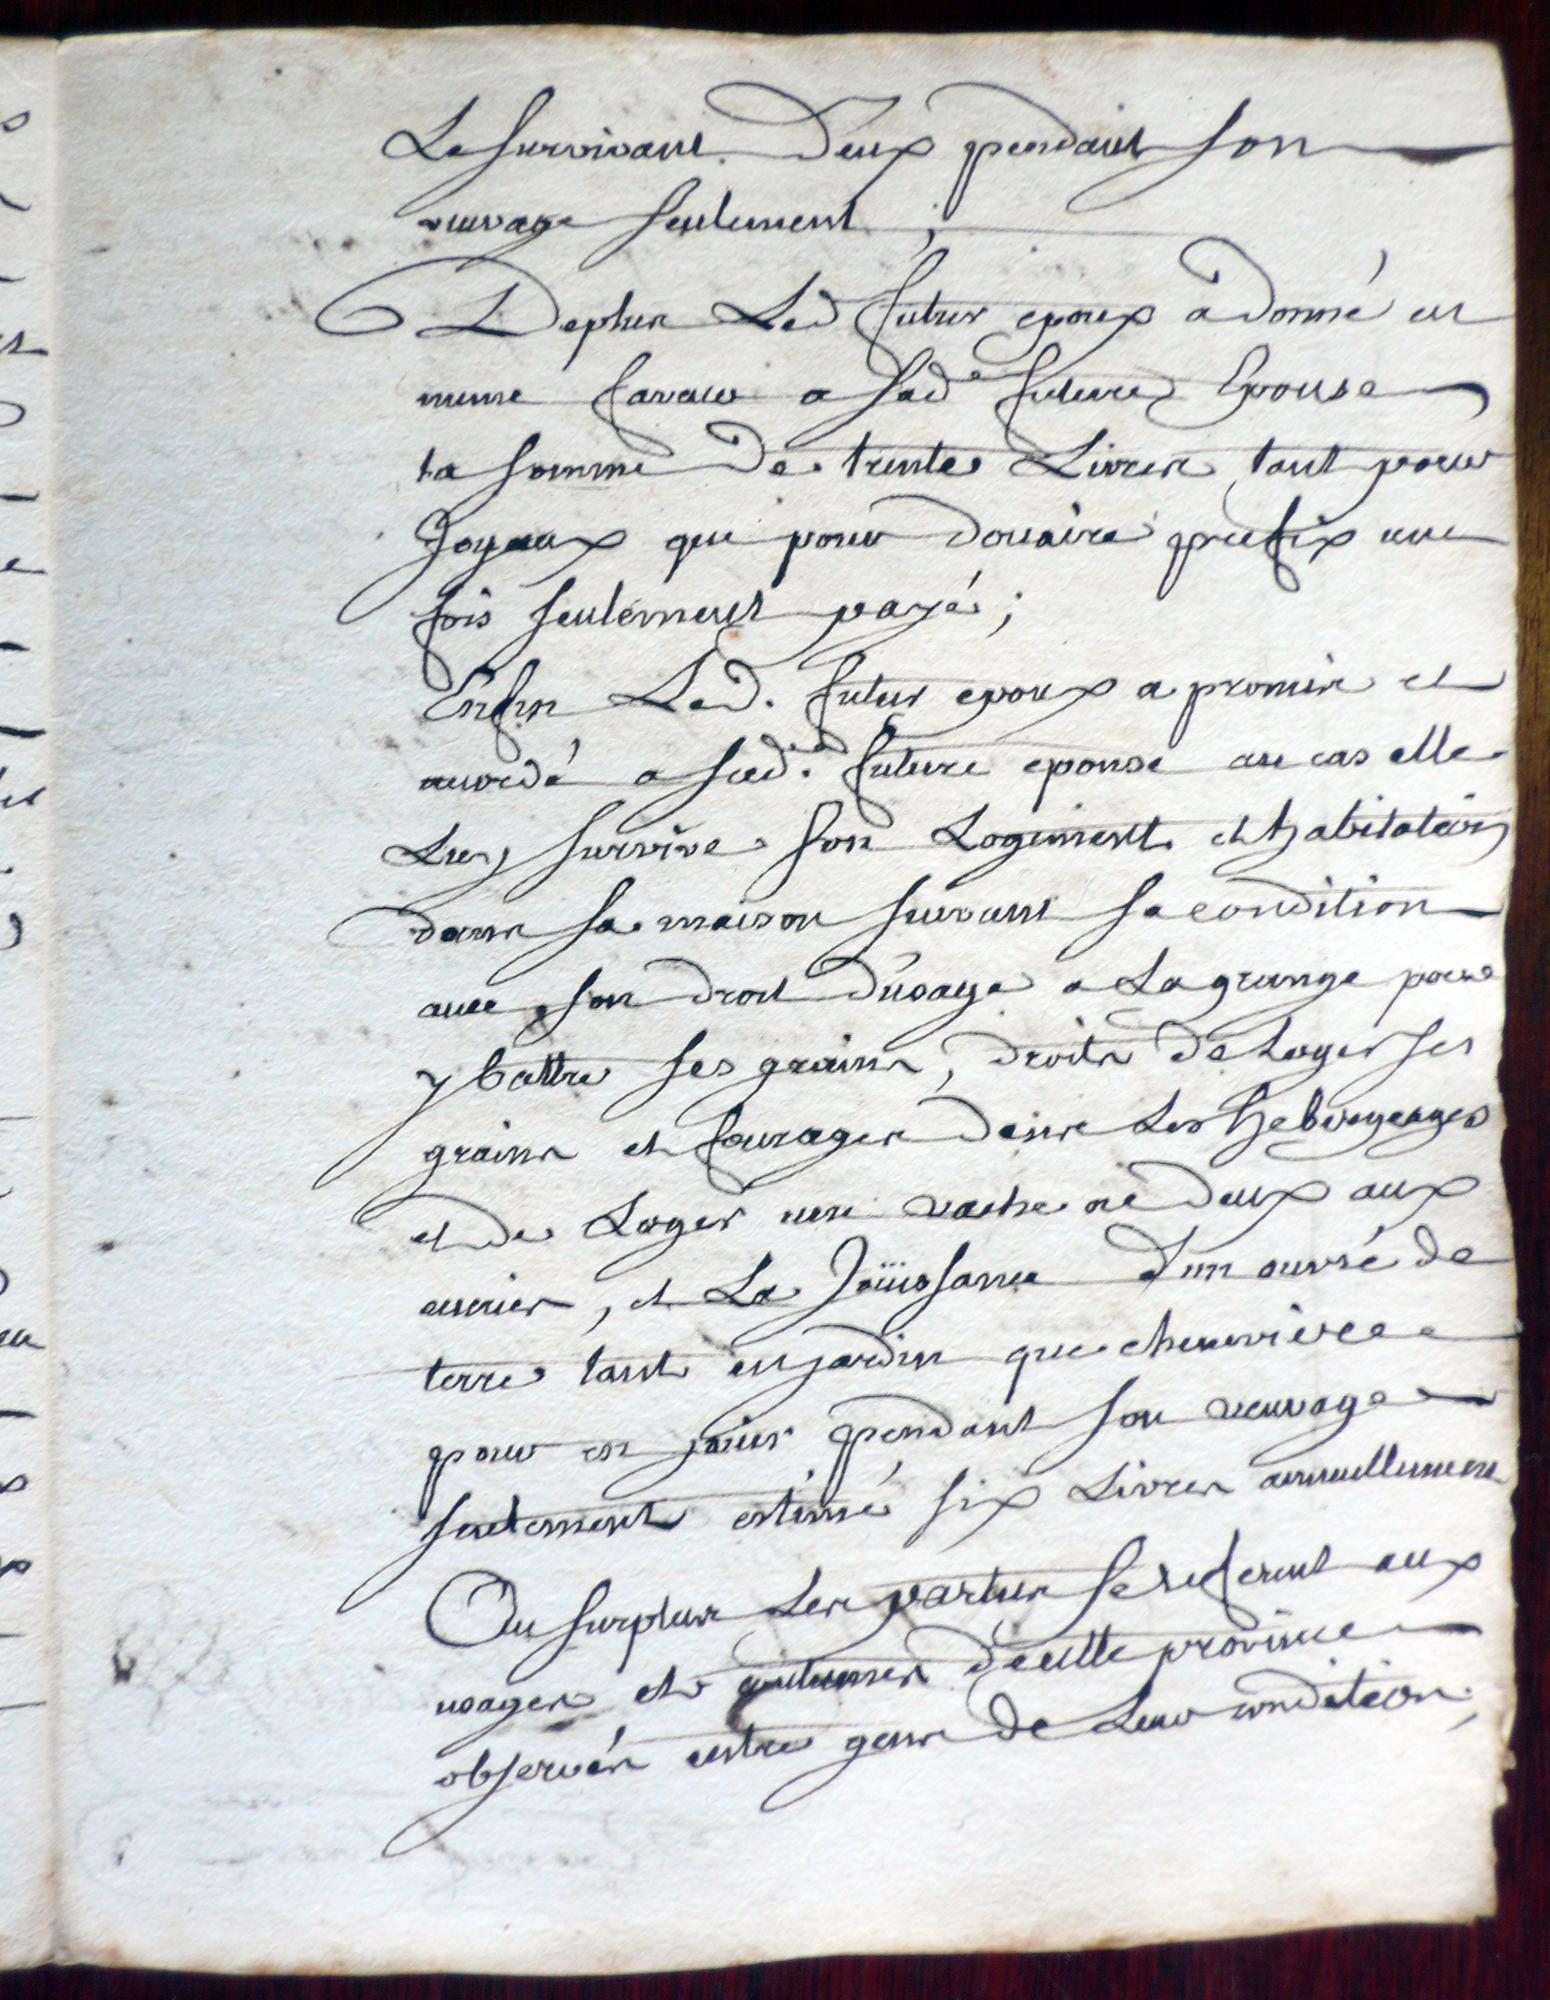 Le survivant d'eux pendant son
veuvage seulement ;
De plus Led futur epoux a donné en
meme faveur a sad.e future Epouse
la somme de trente Livres tant pour
Joyaux que pour douaire prefix une
fois seulement payé ;
Enfin Led. futur epoux a promis et
accordé a sad.e future epouse au cas elle
Luy survive son Logement et habitation
dans sa maison suivant sa condition
avec son droit d'usage a La grange pour
y battre ses grains, droits de Loger ses
grains et fourages dans Les hebergeages
et de Loger une vache oü deux aux
ecuries, et La Joüissance d'un ouvré de
terre tant en jardin que cheneviere
pour en joüir pendant son veuvage
seulement estimé six Livres annuellement
Au surplus Les parties se referent aux
usages et coutumes d'cette province
observés entre gens de Leur condition ;